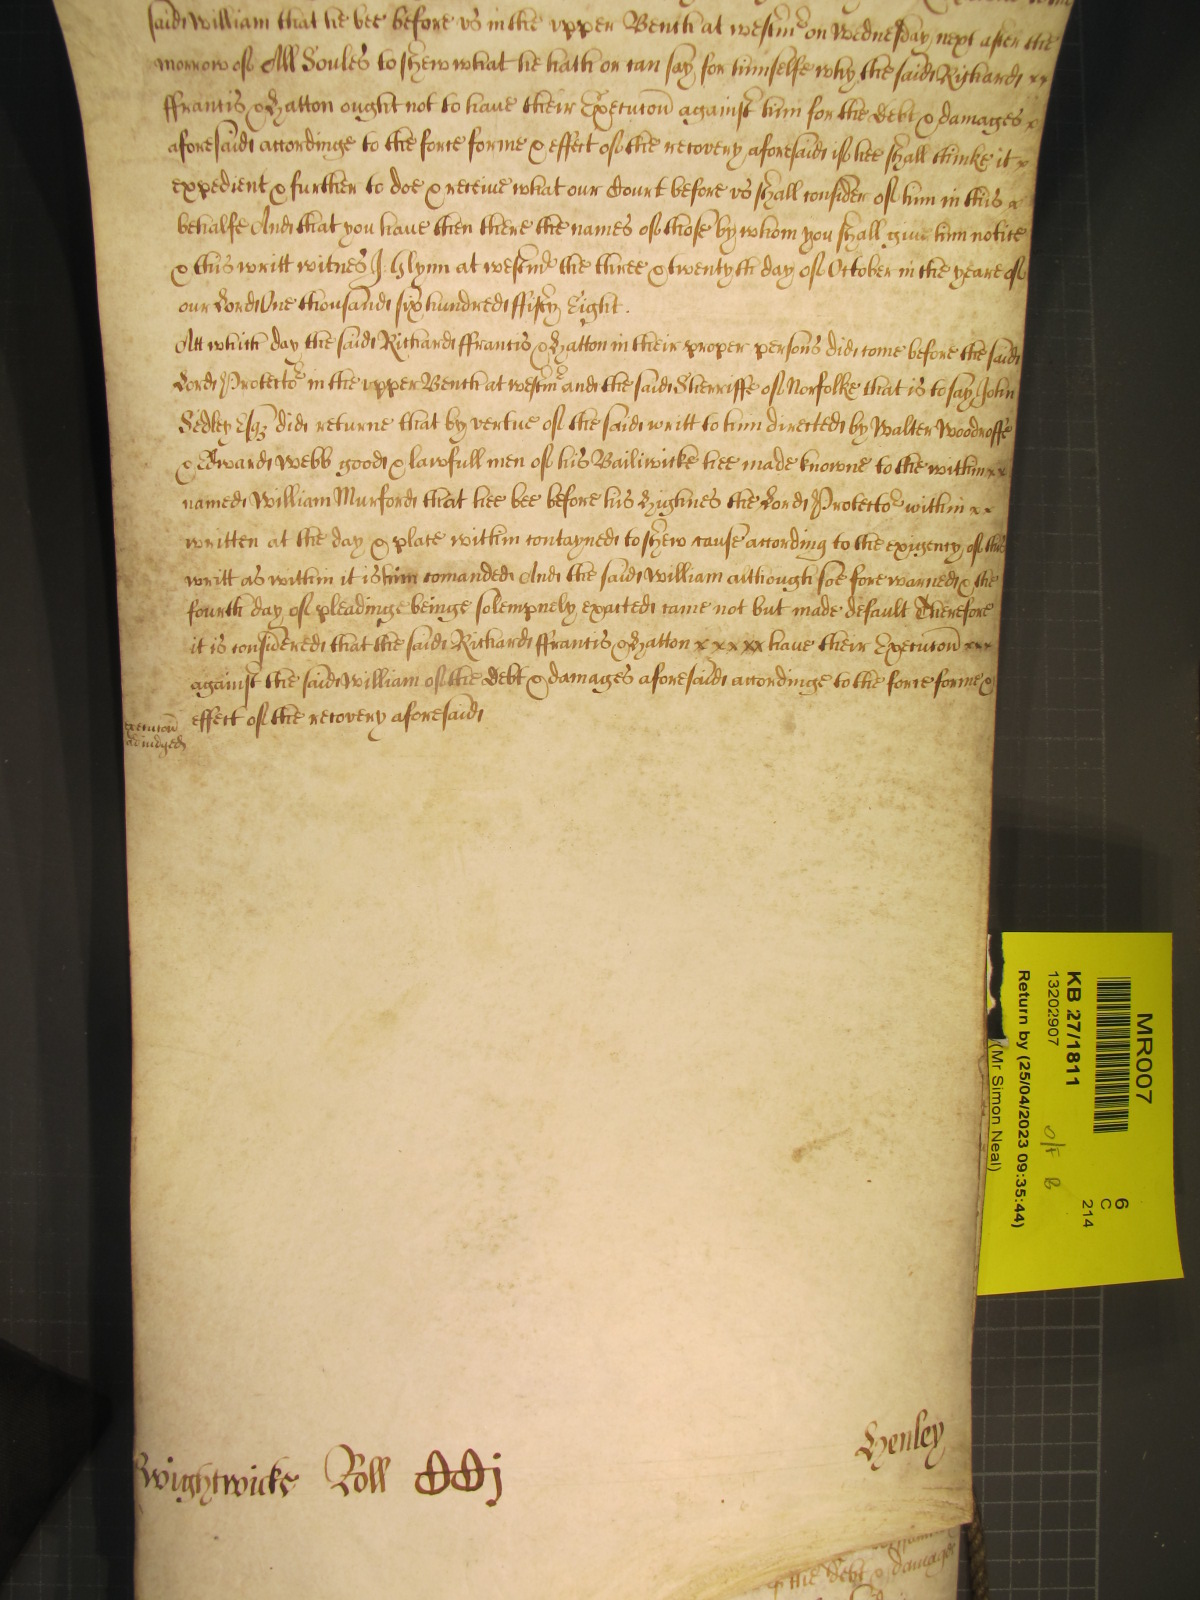 said William that hee bee before vs in the vpper Bench at westmr on Wednesday next after the
morrow of All Soules to shew what he hath or can say for himselfe why the said Richard xx
ffrancis & Hatton ought not to haue their Execucon against him for the debt & damages x
aforesaid accordinge to the force forme & effect of the recovery aforesaid if hee shall thinke it x
expedient & further to doe & receiue what our Court before vs shall consider of him in this x
behalfe And that you haue then there the names of those by whom you shall giue him notice
& this writt witnes J: Glynn at westmr the three & twentyth day of October in the yeare of
our Lord One thousand six hundred ffifty Eight.
Att which day the said Richard ffrancis & Hatton in their proper persons did come before the said
Lord Protector in the vpper Bench at westmr and the said Sherriffe of Norfolke that is to say John
Sedley Esqz did returne that by vertue of the said writt to him directed by Walter Woodroffe
& Edward Webb good & lawfull men of his Bailiwicke hee made knowne to the within xx
named William Murford that hee bee before his Highnes the Lord Protector within xx
written at the day & place within contayned to shew cause according to the exigency of this
writt as within it is him comanded And the said William although soe fore warned & the
fourth day of pleadinge beinge solempnely exacted came not but made default Therefore
it is considered that the said Richard ffrancis & Hatton xxxxx haue their Execucon xxx
against the said William of the debt & damages aforesaid accordinge to the force forme &
effect of the recovery aforesaid
Execucon
adiudged
Wightwicke Roll DDj
Henley
the debt & damages
MR007
KB 27/1811
13202907
o/f B
Return by (25/04/2023 09:35:44)
(Mr Simon Neal)
6
C
214